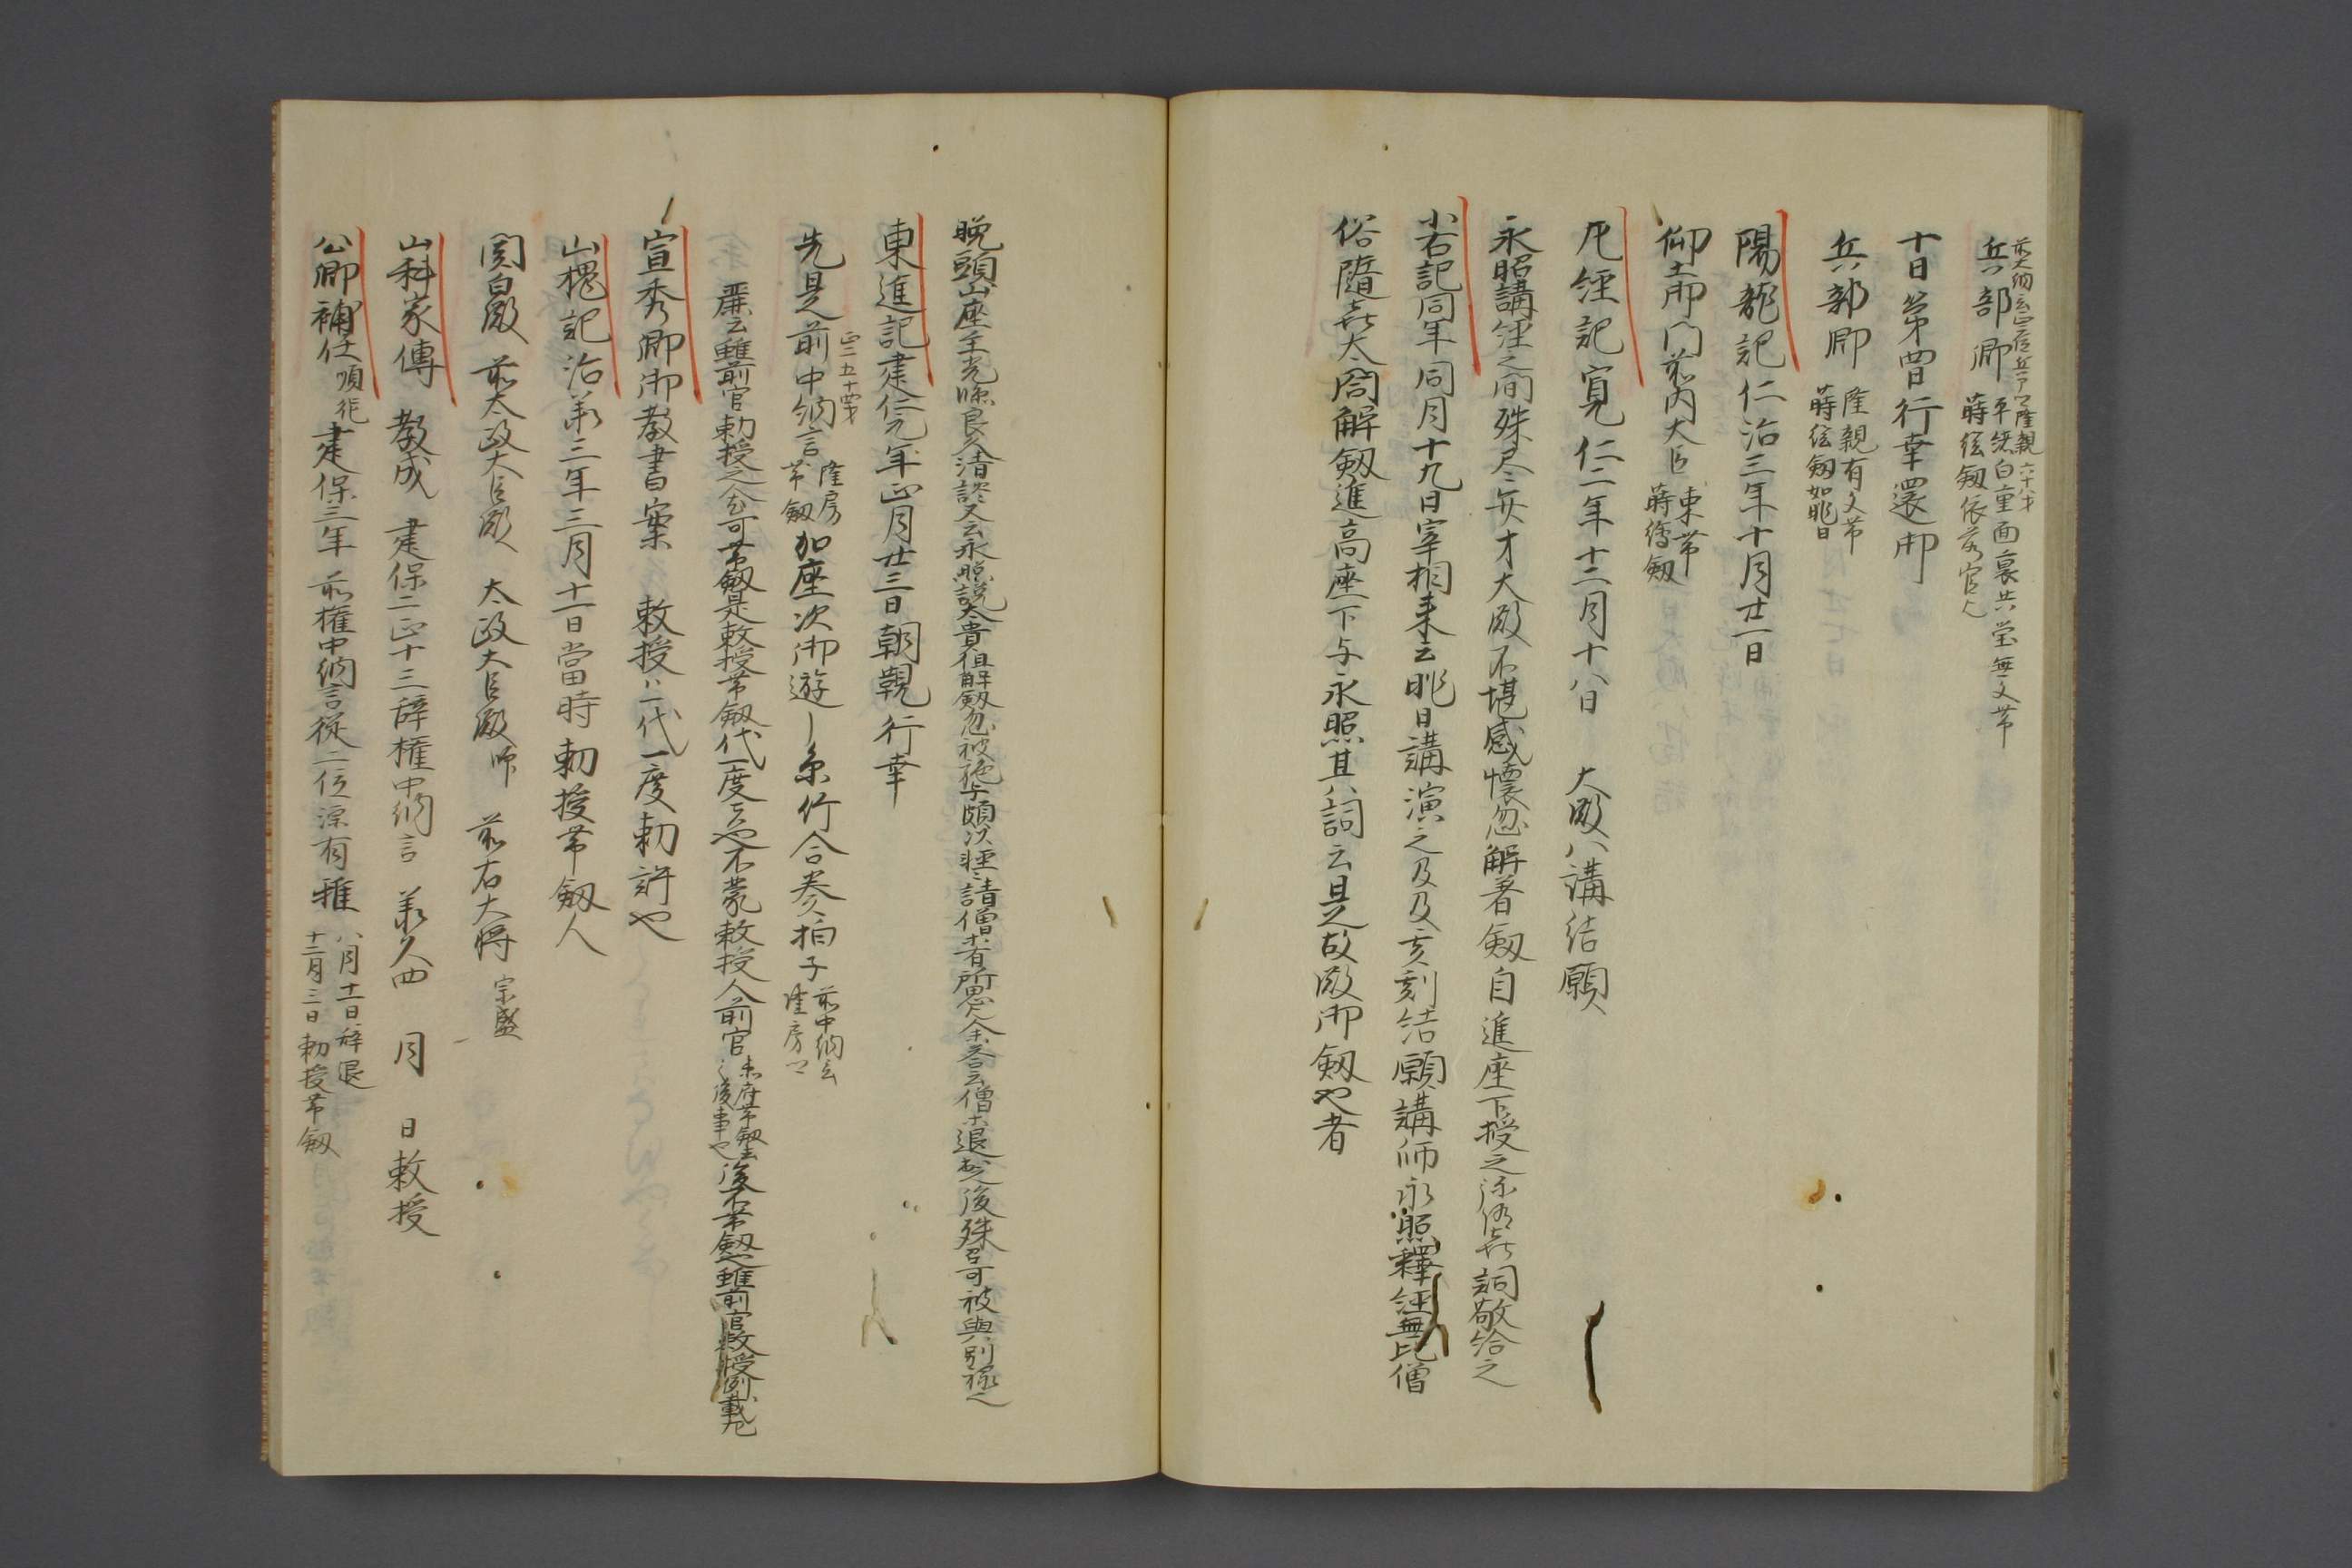 前大納言正二位兵部卿隆親六十八才
兵部卿 平緒白重面裏共瑩無文帯
蒔絵劔依前官也
十日第四日行幸還御
兵部卿 隆親有文帯
蒔絵劔如昨日
陽龍記仁治三年十月廿一日
仰土御門前内大臣 束帯
蒔絵劔
左経記寛仁二年十二月十八日 大殿八講結願
永昭講経之間殊尽弁才大殿不堪感懐忽解著劔自進座下授之 詞敬給之
小右記同年同月十九日宰相来云昨日講演之及亥刻結願講師永照釋経無比僧
俗隨喜大閤解劔進高座下与永照其詞云是故殿御劔也者
晩頭山座主 良久清談又云永照説太貴但解劔忽被 頗以軽請僧者所思 余答云僧等退出後殊召可被與別禄
東進記建仁元年正月廿三日朝覲行幸
先是前中納言 正二五十四才 隆房
帯劔 加座次御遊 糸竹合奏拍子 前中納言
隆房
廉云雖前官勅授之人可帯劔是敕授帯劔代一度 也不蒙敕授人前官 帯劔
後事也 後不帯劔也雖前官敕授例載左
宣秀卿御教書案 敕授ハ一代一度勅許也
山槐記治承三年三月十一日當時勅授帯劔人
関白殿 前太政大臣殿 太政大臣殿師 前右大将 宗盛
山科家傳 教成 建保二正十三辞権中納言 承久四 月 日敕授
公卿補任順徳建保三年 前権中納言従二位源有雅 八月十一日辞退
十二月三日勅授帯劔